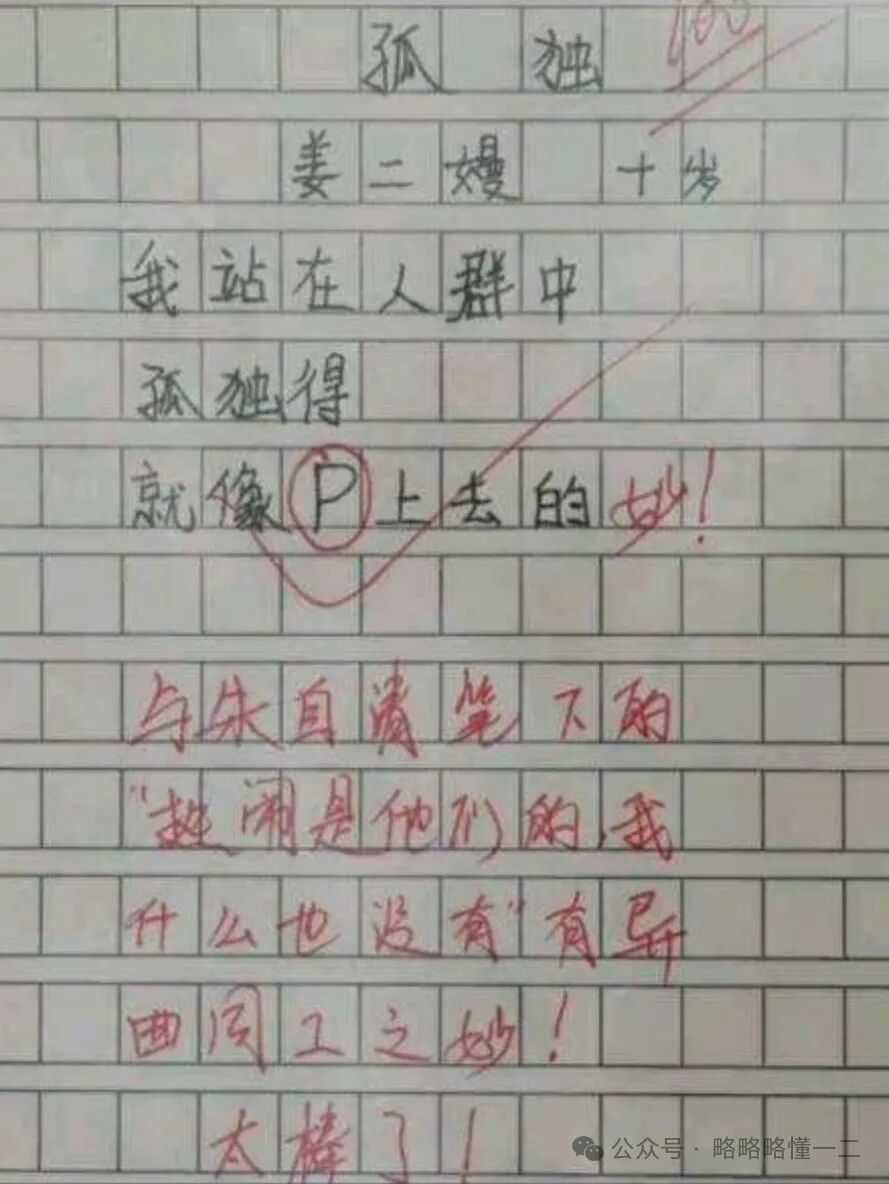 孤独 100
姜二嫚 十岁
我站在人群中
孤独得
就像P上去的 妙!
与朱自清笔下的
"热闹是他们的,我
什么也没有"有异
曲同工之妙!
太棒了!
公众号·略略略懂一二